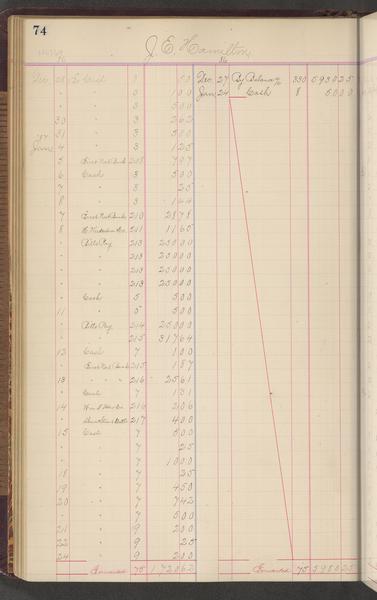 74
J. E. Hamilton
86
86
Dec 28 To Cash 3
Dec 27 By Balance 330 593025
" 3 100
Jan 24 Cash 8 5000
" 3 500
30 " 3 262
31 " 3 500
87
Jan 4 " 3 125
5 First Nat Bank 208 707
6 Cash 3 500
7 " 3 25
8 " 3 144
7 First Nat Bank 210 2878
8 211 1160
" Bills Pay 213 25000
" " 213 25000
" " 213 25000
" " 213 25000
" Cash 5 500
11 " 5 500
" Bills Pay 214 25000
" " 215 31764
12 Cash 7 100
" First Nat Bank 215 187
13 " " " 216 2561
" Cash 7 131
14 216 206
" 217 400
15 Cash 7 500
" " 7 25
" " 7 1000
18 " 7 25
19 " 7 450
20 " 7 742
" " 7 500
21 " 9 200
22 " 9 25
24 " 9 200
Forward 75 172062
Forward 75 598025